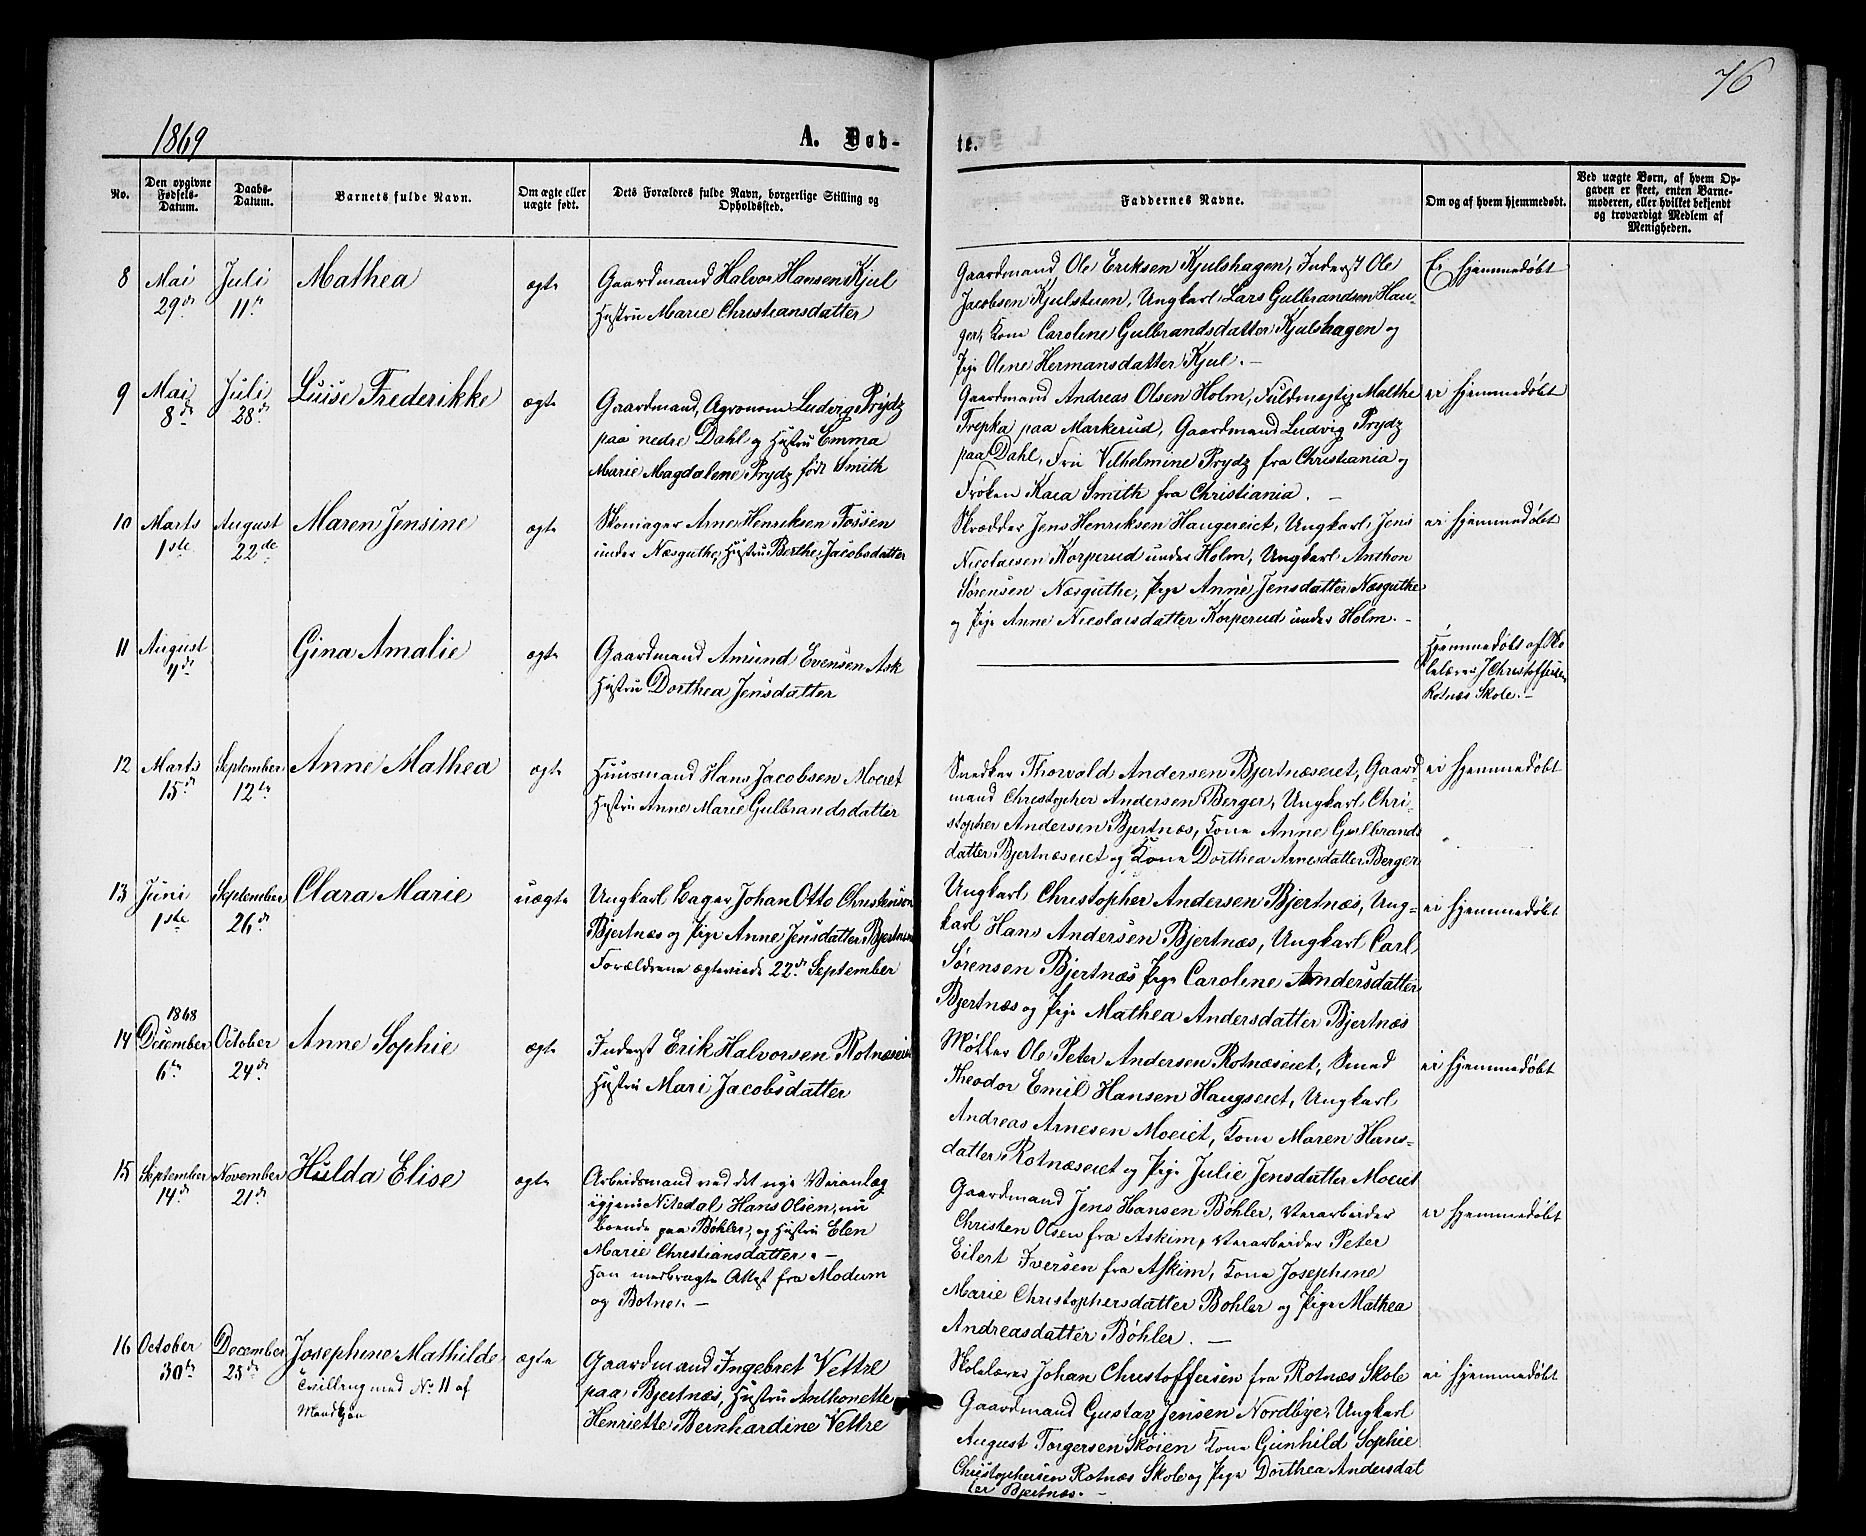 76
1869
A. Døb-
te.
No.
Den opgivne Fødsels-Datum.
Daabs-Datum.
Barnets fulde Navn.
Om ægte eller uægte født.
Dets Forældres fulde Navn, borgerlige Stilling og Opholdssted.
Faddernes Navne.
Om og af hvem hjemmedøbt.
Ved uægte Børn, af hvem Op-
gaven er skeet, enten Barne-
moderen, eller hvilket bekjendt
og troværdigt Medlem af
Menigheden.
8 Mai 29de Juli 11te Mathea ægte
Gaardmand Halvor Hansen Kjul
Hustru Marie Christiansdatter
Gaardmand Ole Eriksen Kjulshagen, Inderst Ole
Jacobsen Kjulstuen, Ungkarl Lars Gulbrandsen Hau-
ger, Kone Caroline Gulbrandsdatter Kjulshagen og
Pige Olene Hermansdatter Kjul. –
Ei hjemmedøbt
9 Mai 8de Juli 28de Luise Frederikke ægte
Gaardmand, Agronom Ludvig Prydz
paa nedre Dahl og Hustru Emma
Marie Magdalene Prydz født Smith
Gaardmand Andreas Olsen Holm, Fuldmægtig Malthe
Trepka paa Markerud, Gaardmand Ludvig Prydz
paa Dahl, Fru Vilhelmine Prydz fra Christiania og
Frøken Kaia Smith fra Christiania. –
ei hjemmedøbt
10 Marts 1ste August 22de Maren Jensine ægte
Skomager Arne Henriksen Fossen
under Næsguthe, Hustru Berthe Jacobsdatter
Skrædder Jens Henriksen Haugereiet, Ungkarl Jens
Nicolaisen Korperud under Holm, Ungkarl Anthon
Sørensen Næsguthe, Pige Anne Jensdatter Næsguthe
og Pige Anne Nicolaisdatter Korperud under Holm. –
ei hjemmedøbt
11 August 4de Gina Amalie ægte
Gaardmand Amund Evensen Ask
Hustru Dorthea Jensdatter
Hjemmedøbt af Sko-
lelærer J Christoffersen
Rotnæs Skole. –
12 Marts 15de September 12te Anne Mathea ægte
Huusmand Hans Jacobsen Moeiet
Hustru Anne Marie Gulbrandsdatter
Snedker Thorvald Andersen Bjertnæseiet, Gaard
mand Christopher Andersen Berger, Ungkarl Chri-
stopher Andersen Bjertnæs, Kone Anne Gulbrands
datter Bjertnæseiet og Kone Dorthea Arnesdatter Berger
ei hjemmedøbt
13 Juni 1ste September 26de Clara Marie uægte
Ungkarl Bager Johan Otto Christensen
Bjertnæs og Pige Anne Jensdatter Bjertnæs
Forældrene ægteviede 22de September
Ungkarl Christopher Andersen Bjertnæs, Ung-
karl Hans Andersen Bjertnæs, Ungkarl Carl
Sørensen Bjertnæs Pige Caroline Andersdatter
Bjertnæs og Pige Mathea Andersdatter Bjertnæs
ei hjemmedøbt
14 1868 December 6te October 24de Anne Sophie ægte
Inderst Erik Halvorsen Rotnæseiet
Hustru Mari Jacobsdatter
Møller Ole Peter Andersen Rotnæseiet, Smed
Theodor Emil Hansen Haugseiet, Ungkarl
Andreas Arnesen Moeiet, Kone Maren Hans-
datter Rotnæseiet og Pige Julie Jensdatter Moeiet
ei hjemmedøbt
15 September 14de November 21de Hulda Elise ægte
Arbeidsmand ved det nye Veianlæg
igjennem Nitedal Hans Olsen, nu
boende paa Bøhler, og Hustru Elen
Marie Christiansdatter. –
Han medbragte Attest fra Modum
og Botne. –
Gaardmand Jens Hansen Bøhler, Veiarbeider
Christen Olsen fra Askim, Veiarbeider Peter
Eilert Iversen fra Askim, Kone Josephine
Marie Christophersdatter Bøhler og Pige Mathea
Andreasdatter Bøhler. –
ei hjemmedøbt
16 October 30te December 25de Josephine Mathilde ægte
Tvilling med No 11 af
Mandkjøn
Gaardmand Ingebret Vettre
paa Bjertnæs, Hustru Anthonette
Henriette Bernhardine Vettre
Skolelærer Johan Christoffersen fra Rotnæs Skole
Gaardmand Gustav Jensen Nordbye, Ungkarl
August Torgersen Skøien Kone Gunhild Sophie
Christophersen Rotnæs Skole og Pige Dorthea Andersdat
ter Bjertnæs. –
ei hjemmedøbt